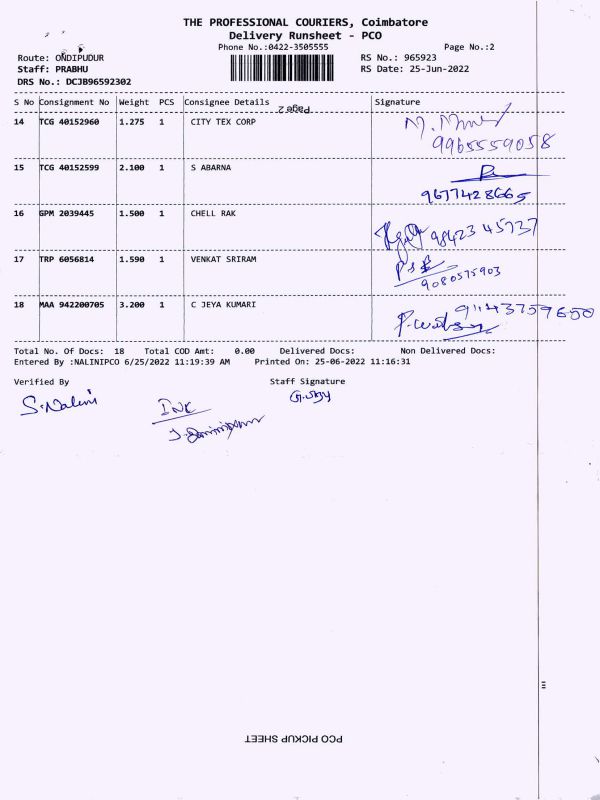 THE PROFESSIONAL COURIERS, Coimbatore
Delivery Runsheet - PCO
Phone No.:0422-3505555 Page No.:2
Route: ONDIPUDUR RS No.: 965923
Staff: PRABHU RS Date: 25-Jun-2022
DRS No.: DCJB96592302
S No Consignment No Weight PCS Consignee Details Signature
Page 2
14 TCG 40152960 1.275 1 CITY TEX CORP
9965559058
15 TCG 40152599 2.100 1 S ABARNA
9677428665
16 GPM 2039445 1.500 1 CHELL RAK
9842345737
17 TRP 6056814 1.590 1 VENKAT SRIRAM
9080575903
18 MAA 942200705 3.200 1 C JEYA KUMARI
Total No. Of Docs: 18 Total COD Amt: 0.00 Delivered Docs: Non Delivered Docs:
Entered By :NALINIPCO 6/25/2022 11:19:39 AM Printed On: 25-06-2022 11:16:31
Verified By Staff Signature
S.Nalini
PCO PICKUP SHEET